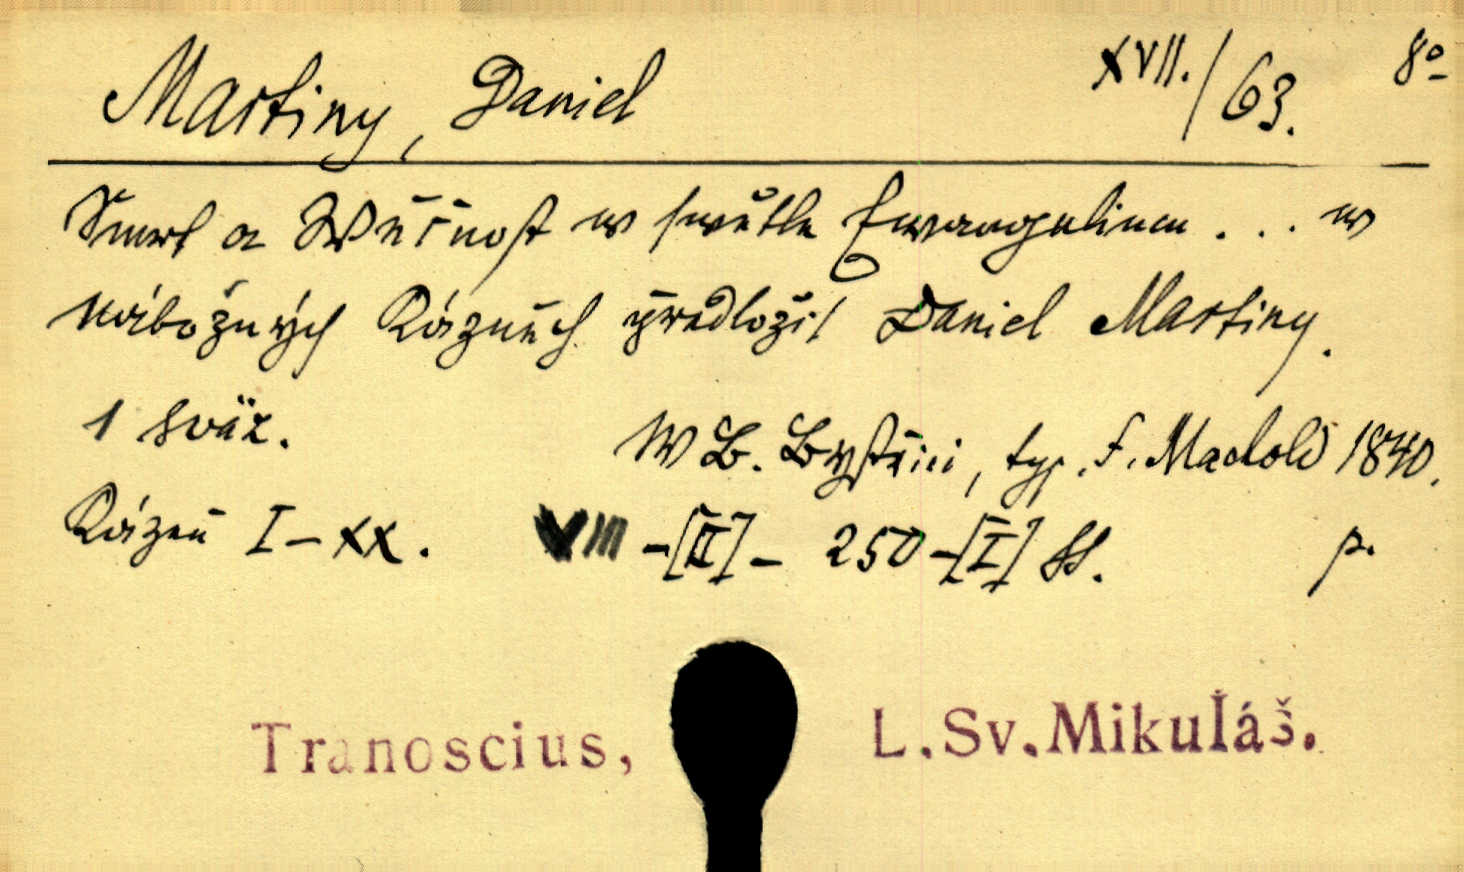 Martiny, Daniel XVII./63. 8º
Smrt a Wěčnost w swětle Ewangelium ... w
nábožných Kázněch předložil Daniel Martiny.
1 sväz. W B. Bystrici, typ. F. Machold 1840.
Kázeň I-XX. VIII-[II]-250-[I] ss. p.
Tranoscius, L.Sv.Mikuláš.